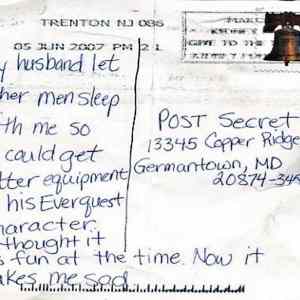 TRENTON NJ 086
05 JUN 2007 PM 2 L
y husband let
her men sleep
th me so
could get
tter equipment
his Everquest
haracter.
thought it
s fun at the time. Now it
akes me sad
POST Secret
13345 Copper Ridge
Germantown, MD
20874-345